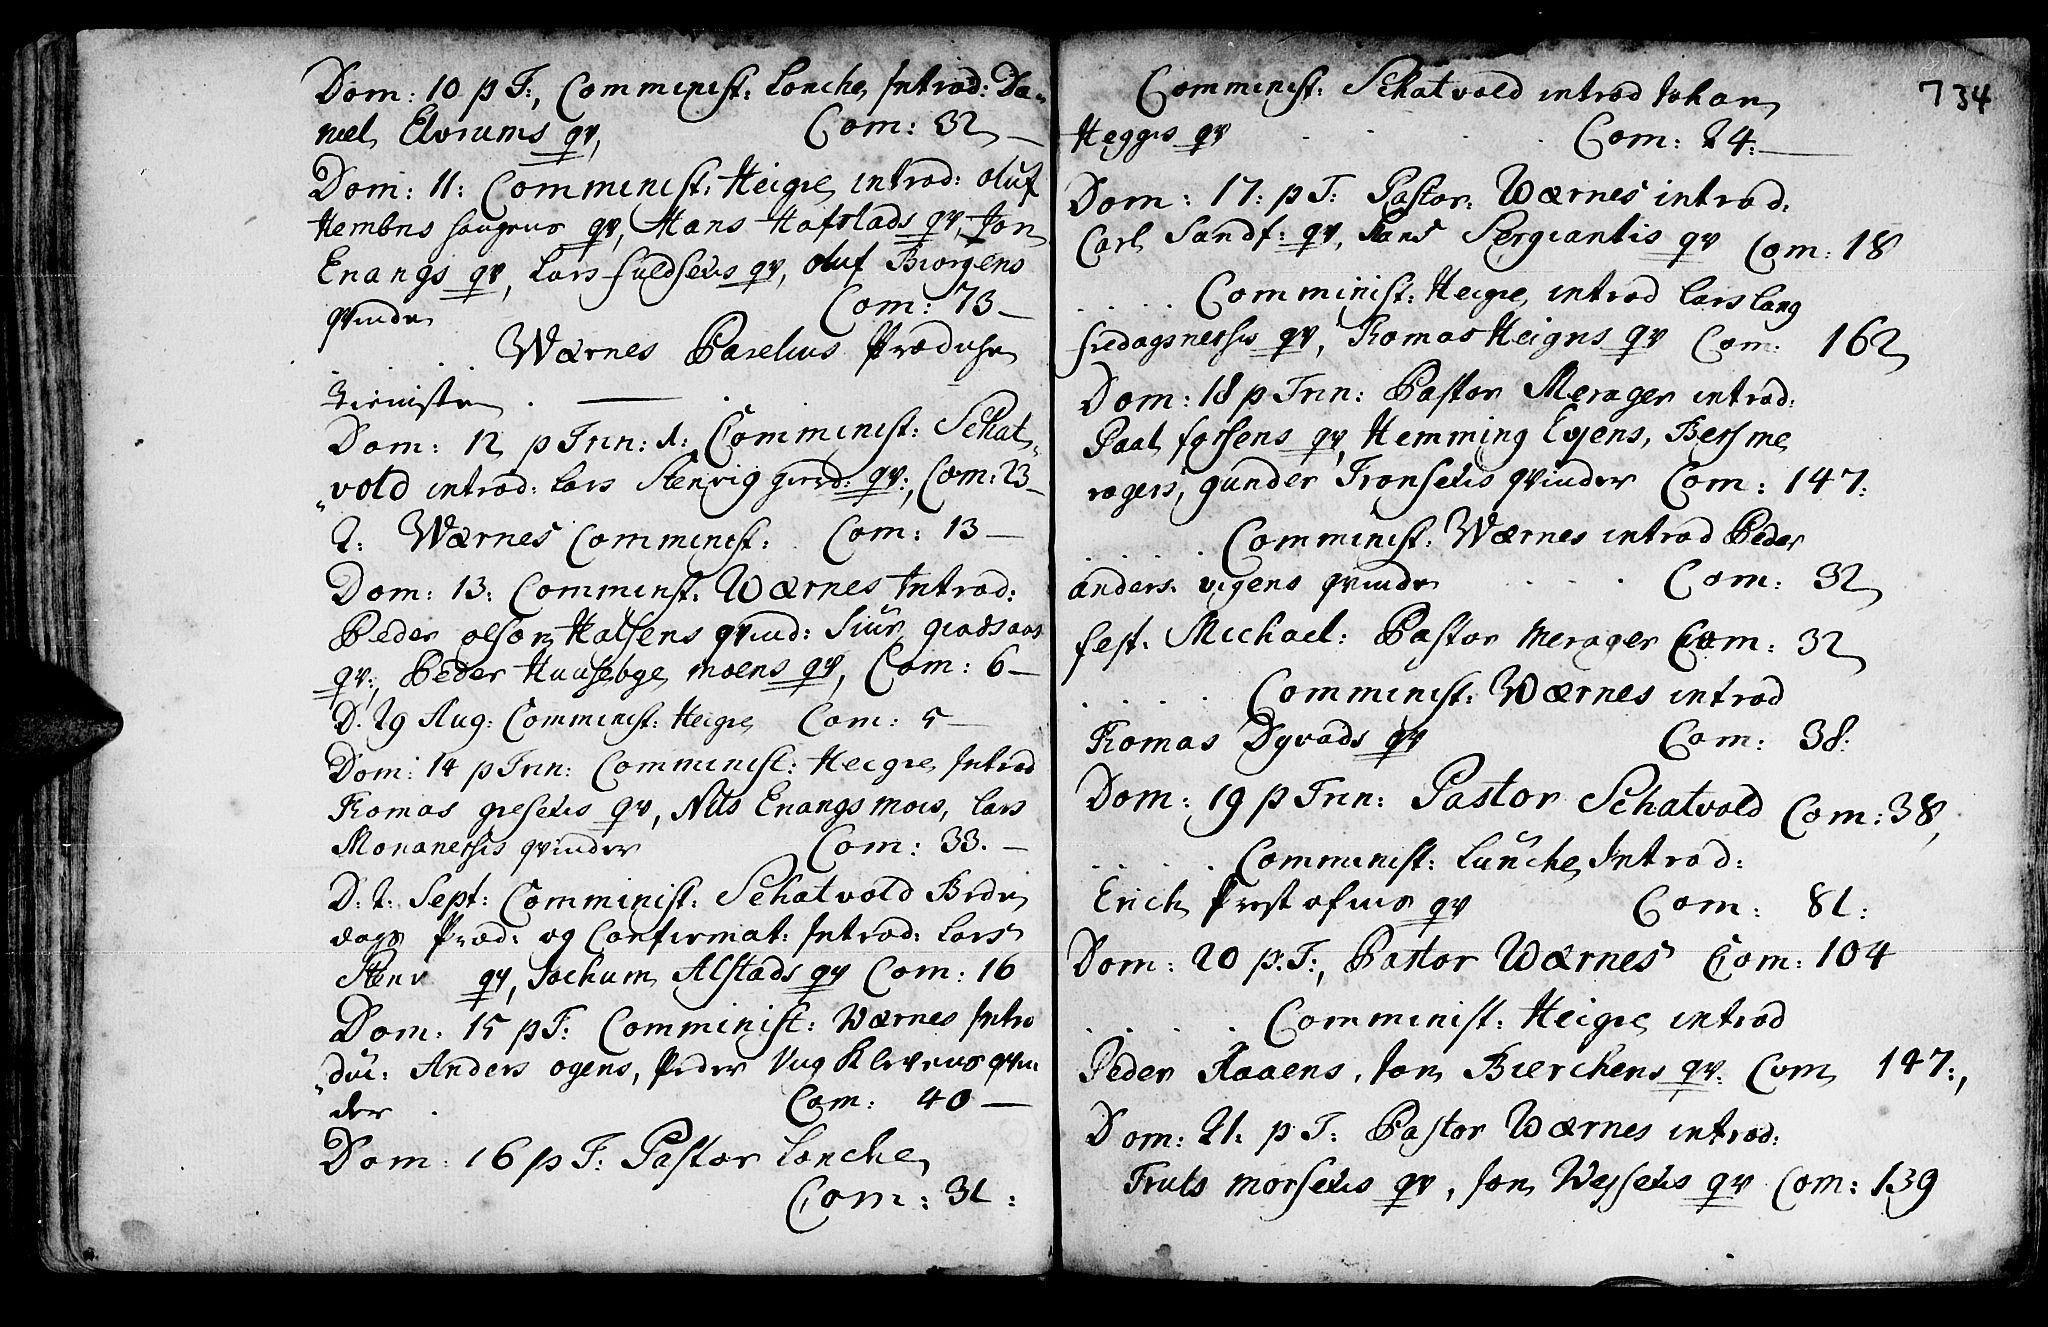 Dom: 10 p T:, Comminist: Lonche Introd: Da-
niel Elvrums qv, Com: 32 —
Dom: 11: Comminist: Heigre introd: oluf
Hembre haugens qv, Hans Hafstads qv, Jon
Enangs qv, Lars fuldsetis qv, oluf Biorgens
qvinde Com: 73 —
Wærnes Parelius

Dom: 12 p Trin: 1: Comminist: Schat-
vold introd: Lars Stenvig qv:, Com: 23 —
2: Wærnes Comminist: Com: 13 —
Dom: 13: Comminst: Wærnes Introd:
Peder olson Halsens qvind: Siur
qv:, Peder Huusebye moens qv, Com: 6 —
D. 29 Aug: Comminist: Heigre Com: 5 —
Dom: 14 p Trin: Comminist: Heigre Introd
Tomas gresetis qv, Nils Enangs mois, Lars
qvinder Com: 33. —
D. 2. Sept: Comminist: Schatvold Bede
dag Præd: og Confirmat: Introd: Lars
Stenv qv, Jochum Alstads qv Com: 16
Dom: 15 p T: Comminist: Wærnes Intro
duc: Anders ogens, Peder qvin
der . Com: 40 —
Dom: 16 p T: Pastor Lonche
Com: 31 :
734
Comminist: Schatvold introd Johan
Hegges qv . . . Com: 24: —
Dom: 17: p T: Pastor: Wærnes introd:
Carl Sandf: qv, Sergiantis qv Com: 18
. . . . Comminist: Heigre introd Lars lang
qv, Tomas Heigns qv Com: 162
Dom: 18 p Trin: Pastor Merager introd:
Paal forsens qv, Hemming Eyens, Bersme
ragers, gunder Tronsetis qvinder Com: 147:
. . . . Comminist: Wærnes introd Peder
anders: vigens qvinde . . . Com: 32
fest. Michael: Pastor Merager Com: 32
. . . . Comminist: Wærnes introd
Tomas Dyvads qv Com: 38:
Dom: 19 p Trin: Pastor Schatvold Com: 38,
. . . . Comminist: Lunche Introd:
Erich qv Com: 81:
Dom: 20 p. T:, Pastor Wærnes Com: 104
. . . . Comminist: Heigre introd
Peder Raaens, Jon Bierchens qv: Com 147:,
Dom: 21: p T: Pastor Wærnes introd:
Truls morsetis qv, Jon Weysetis qv Com: 139